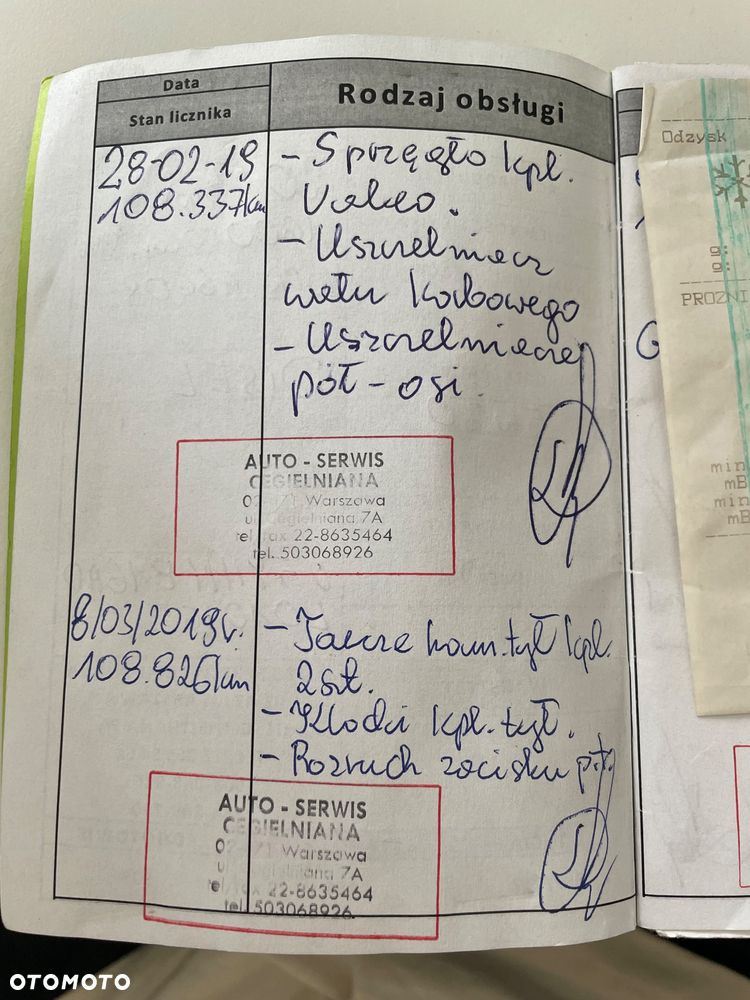 Data
Rodzaj obsługi
Stan licznika
28-02-19
108.337km
- Sprzęgło kpl.
Valeo.
- Uszczelniacz
wału korbowego
- Uszczelniacze
pół-osi.
AUTO - SERWIS
CEGIELNIANA
Warszawa
ul. Cegielniana 7A
tel. fax 22-8635464
tel. 503068926
8/03/2019r.
108.826km
- Tarcze ham. tył kpl.
2szt.
- Klocki kpl. tył.
- Rozruch zacisku p.t.
AUTO - SERWIS
CEGIELNIANA
Warszawa
7A
22-8635464
tel. 503068926
Odzysk
g:
g:
PROZNI
min
mB
min
mB
OTOMOTO